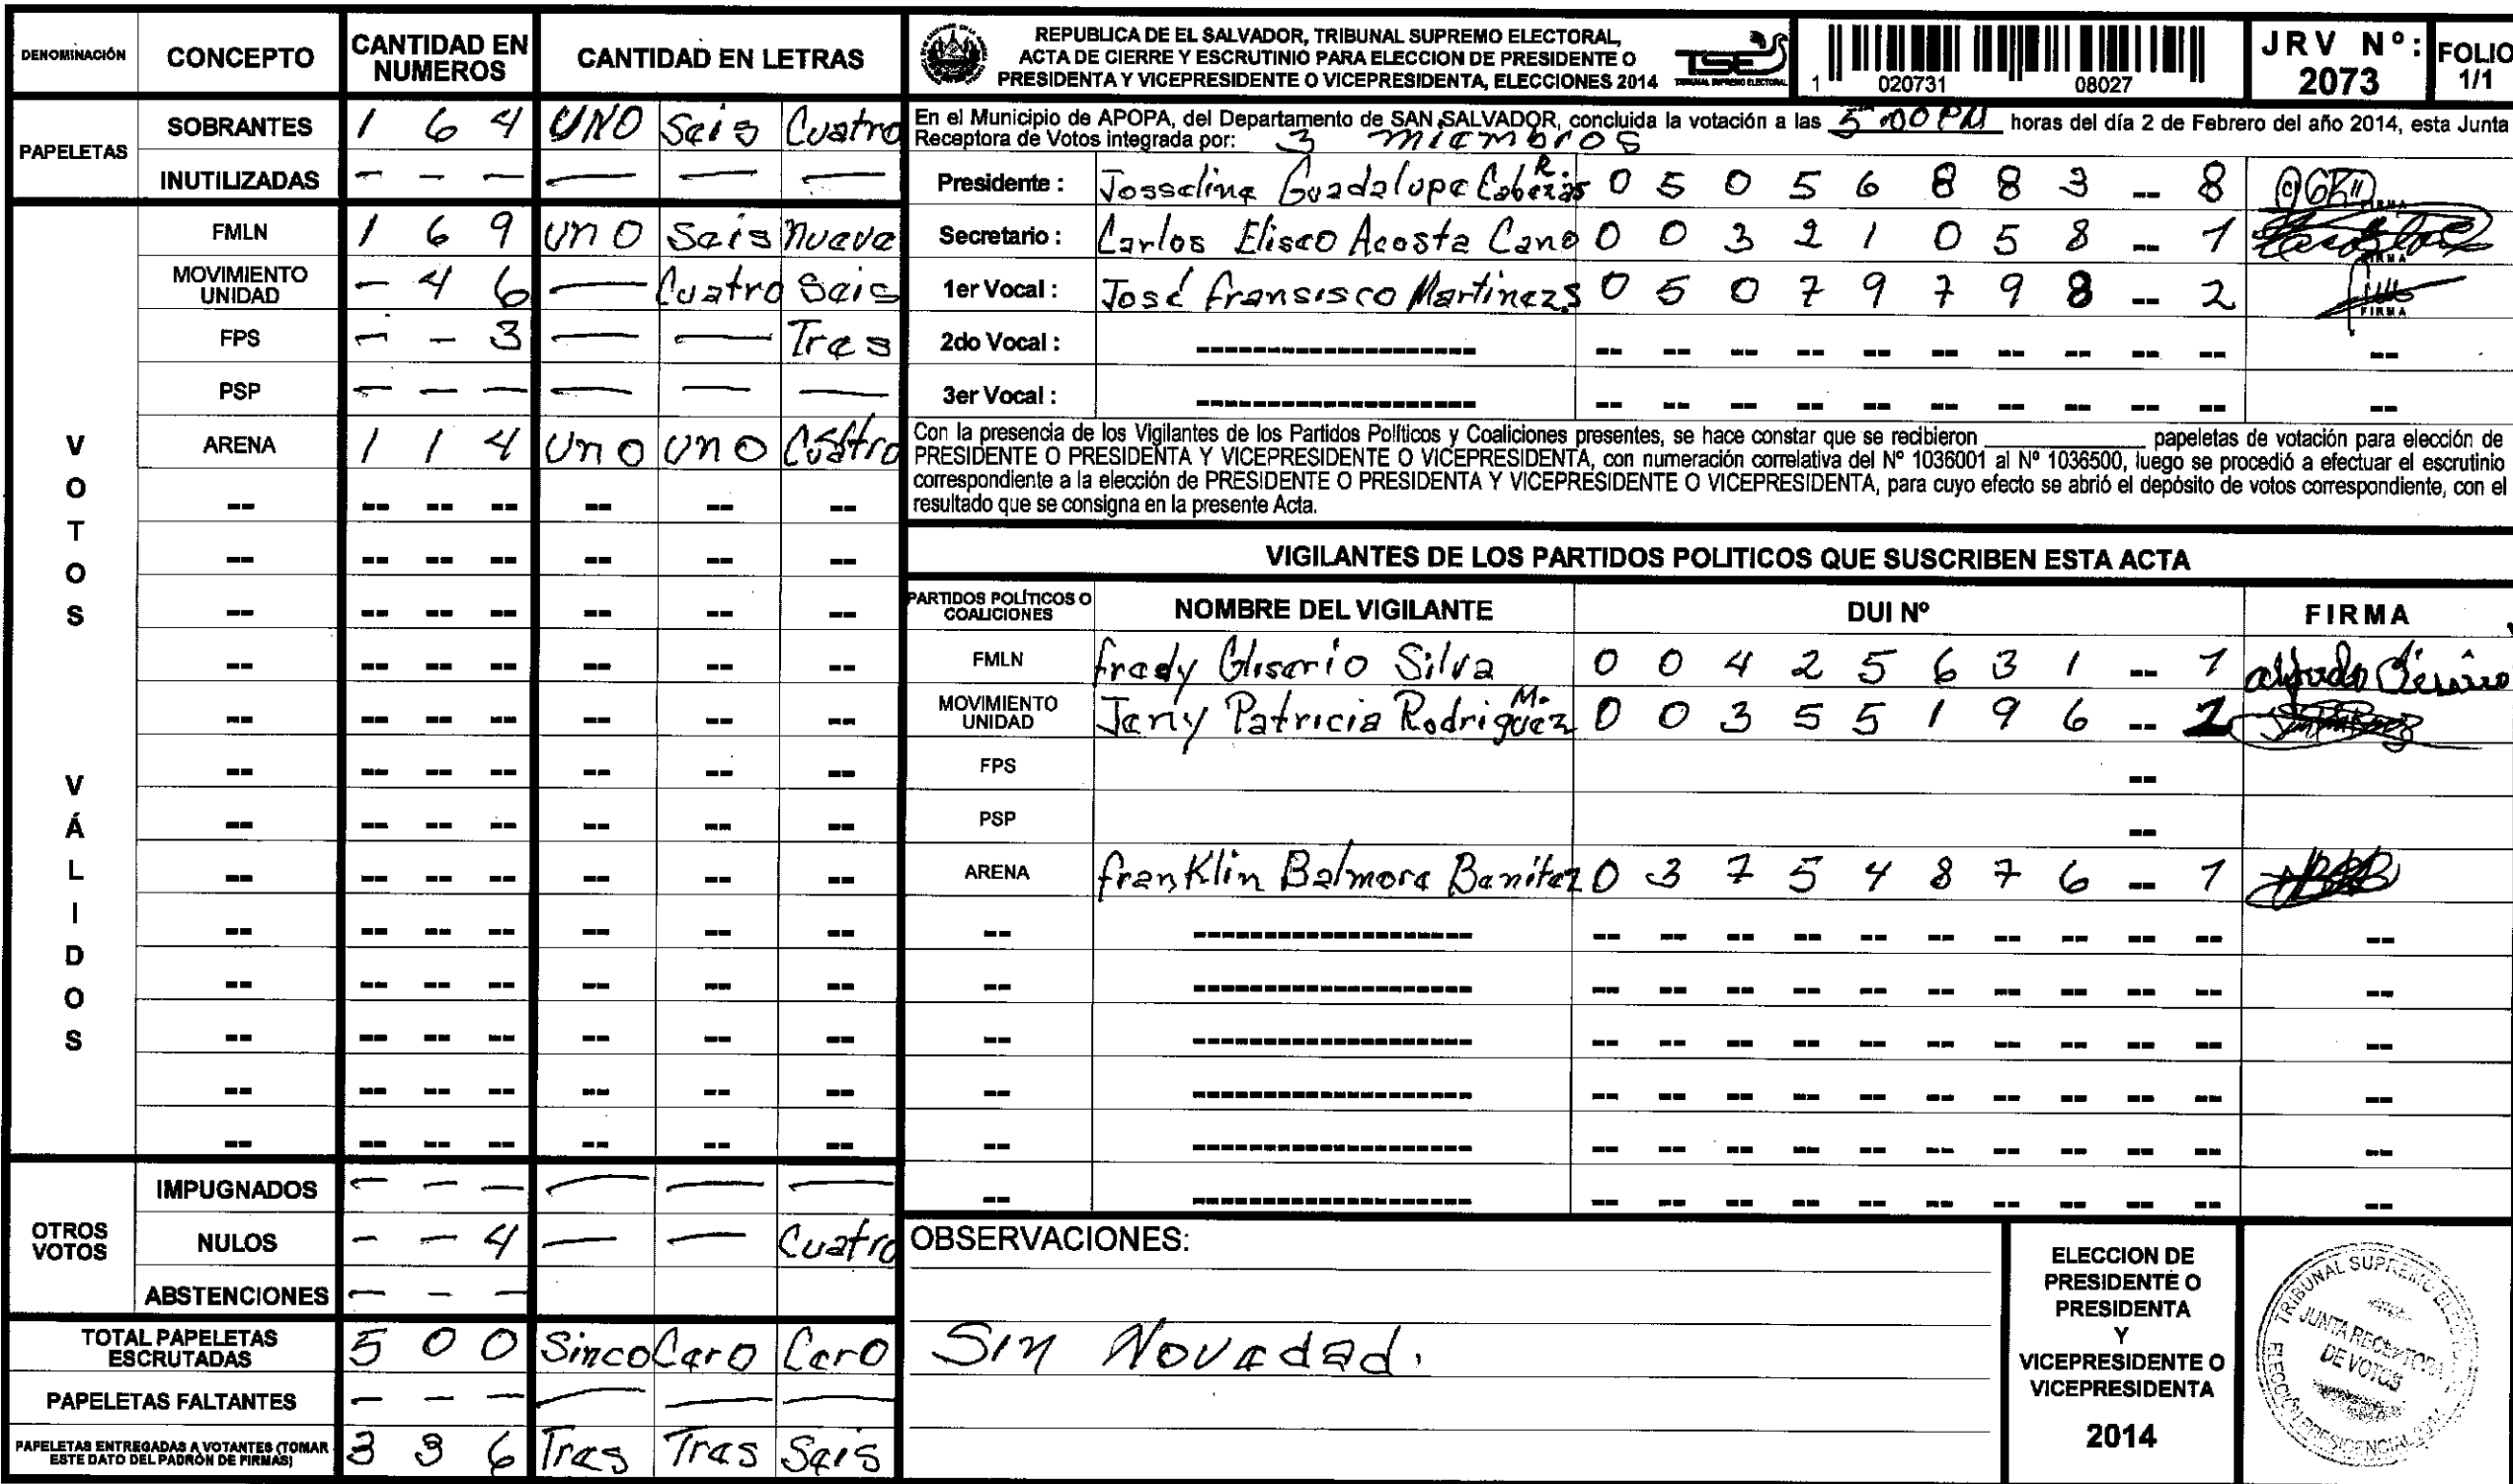 DENOMINACIÓN CONCEPTO CANTIDAD EN NUMEROS CANTIDAD EN LETRAS
PAPELETAS
SOBRANTES 1 6 4 UNO Seis Cuatro
INUTILIZADAS - - - — — —
VOTOS VÁLIDOS
FMLN 1 6 9 uno Seis nueve
MOVIMIENTO UNIDAD - 4 6 — Cuatro Seis
FPS - - 3 — — Tres
PSP - - - — — —
ARENA 1 1 4 Uno uno Cuatro
-- -- -- -- -- -- --
-- -- -- -- -- -- --
-- -- -- -- -- -- --
-- -- -- -- -- -- --
-- -- -- -- -- -- --
-- -- -- -- -- -- --
-- -- -- -- -- -- --
-- -- -- -- -- -- --
-- -- -- -- -- -- --
-- -- -- -- -- -- --
-- -- -- -- -- -- --
-- -- -- -- -- -- --
-- -- -- -- -- -- --
OTROS VOTOS
IMPUGNADOS - - - — — —
NULOS - - 4 — — Cuatro
ABSTENCIONES - - -
TOTAL PAPELETAS ESCRUTADAS 5 0 0 Sinco Cero Cero
PAPELETAS FALTANTES - - - — — —
PAPELETAS ENTREGADAS A VOTANTES (TOMAR ESTE DATO DEL PADRÓN DE FIRMAS) 3 3 6 Tres Tres Seis
REPUBLICA DE EL SALVADOR, TRIBUNAL SUPREMO ELECTORAL,
ACTA DE CIERRE Y ESCRUTINIO PARA ELECCION DE PRESIDENTE O
PRESIDENTA Y VICEPRESIDENTE O VICEPRESIDENTA, ELECCIONES 2014
TSE
TRIBUNAL SUPREMO ELECTORAL
1 020731 08027
JRV Nº: 2073
FOLIO 1/1
En el Municipio de APOPA, del Departamento de SAN SALVADOR, concluida la votación a las 5:00 PM horas del día 2 de Febrero del año 2014, esta Junta
Receptora de Votos integrada por: 3 miembros
Presidente : Josseline Guadalupe Cabezas R. 0 5 0 5 6 8 8 3 -- 8
Secretario : Carlos Eliseo Acosta Cano 0 0 3 2 1 0 5 8 -- 1
1er Vocal : José fransisco Martinezs 0 5 0 7 9 7 9 8 -- 2 FIRMA
2do Vocal : ------------------ -- -- -- -- -- -- -- -- -- -- --
3er Vocal : ------------------ -- -- -- -- -- -- -- -- -- -- --
Con la presencia de los Vigilantes de los Partidos Políticos y Coaliciones presentes, se hace constar que se recibieron ____________ papeletas de votación para elección de
PRESIDENTE O PRESIDENTA Y VICEPRESIDENTE O VICEPRESIDENTA, con numeración correlativa del Nº 1036001 al Nº 1036500, luego se procedió a efectuar el escrutinio
correspondiente a la elección de PRESIDENTE O PRESIDENTA Y VICEPRESIDENTE O VICEPRESIDENTA, para cuyo efecto se abrió el depósito de votos correspondiente, con el
resultado que se consigna en la presente Acta.
VIGILANTES DE LOS PARTIDOS POLITICOS QUE SUSCRIBEN ESTA ACTA
PARTIDOS POLÍTICOS O COALICIONES NOMBRE DEL VIGILANTE DUI Nº FIRMA
FMLN fredy Gliserio Silva 0 0 4 2 5 6 3 1 -- 1
MOVIMIENTO UNIDAD Jeny Patricia Rodriguez M. 0 0 3 5 5 1 9 6 -- 1
FPS --
PSP --
ARENA franklin Balmore Benitez 0 3 7 5 4 8 7 6 -- 1
-- ------------------ -- -- -- -- -- -- -- -- -- -- --
-- ------------------ -- -- -- -- -- -- -- -- -- -- --
-- ------------------ -- -- -- -- -- -- -- -- -- -- --
-- ------------------ -- -- -- -- -- -- -- -- -- -- --
-- ------------------ -- -- -- -- -- -- -- -- -- -- --
-- ------------------ -- -- -- -- -- -- -- -- -- -- --
OBSERVACIONES:
Sin Novedad.
ELECCION DE
PRESIDENTE O
PRESIDENTA
Y
VICEPRESIDENTE O
VICEPRESIDENTA
2014
TRIBUNAL SUPREMO ELECTORAL
JUNTA RECEPTORA
DE VOTOS
ELECCIÓN PRESIDENCIAL